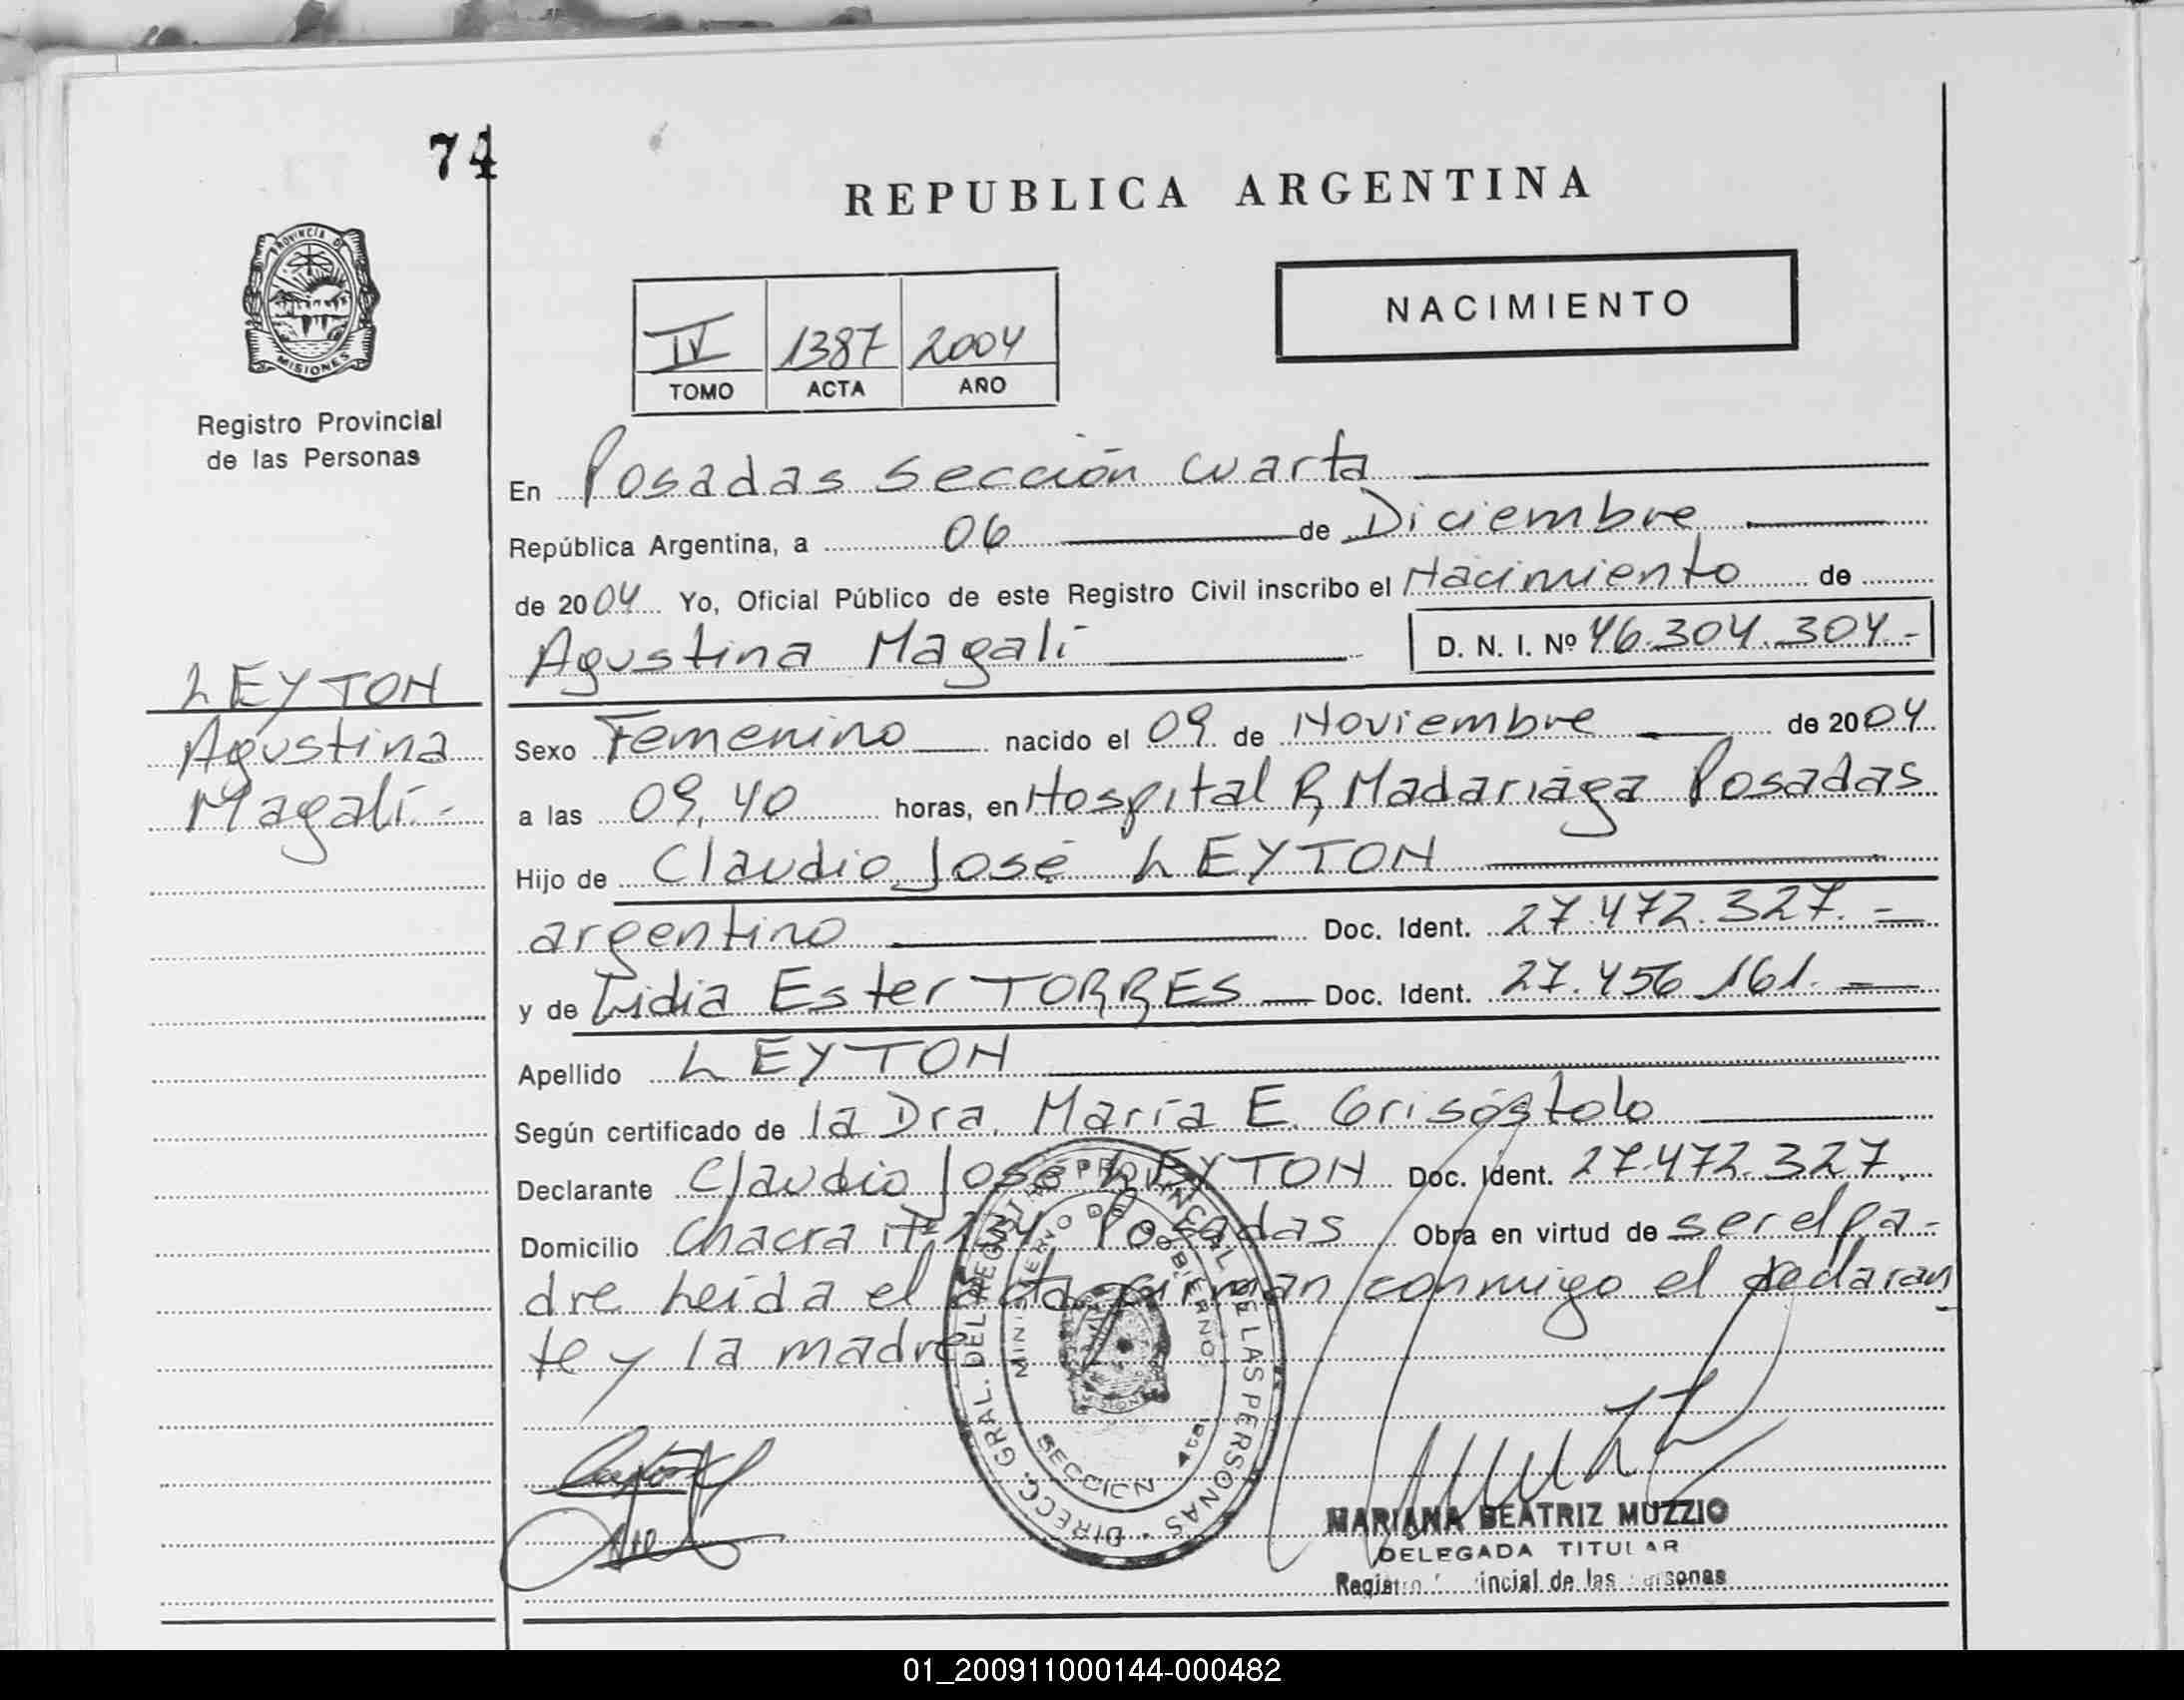 74
REPUBLICA ARGENTINA
PROVINCIA DE
MISIONES
NACIMIENTO
IV 1387 2004
TOMO ACTA AÑO
Registro Provincial
de las Personas
En Posadas Sección Cuarta
República Argentina, a 06 de Diciembre
de 2004 Yo, Oficial Público de este Registro Civil inscribo el Nacimiento de
Agustina Magalí D. N. I. Nº 46.304.304.-
LEYTON
Agustina
Magalí.-
Sexo Femenino nacido el 09 de Noviembre de 2004
a las 09,40 horas, en Hospital R, Madariaga Posadas
Hijo de Claudio José LEYTON
argentino Doc. Ident. 27.472.327.=
y de Lidia Ester TORRES Doc. Ident. 27.456.161.=
Apellido LEYTON
Según certificado de la Dra. María E. Grisóstolo
Declarante Claudio José LEYTON Doc. Ident. 27.472.327.
Domicilio Chacra Nº 134 Posadas Obra en virtud de ser el pa-
dre Leida el acta firman conmigo el declaran
te y la madre
DIRECC. GRAL. DEL REGISTRO PROVINCIAL DE LAS PERSONAS
MINISTERIO DE GOBIERNO
SECCION 4ta.
MARIANA BEATRIZ MUZZIO
DELEGADA TITULAR
Registro Provincial de las Personas
01_200911000144-000482